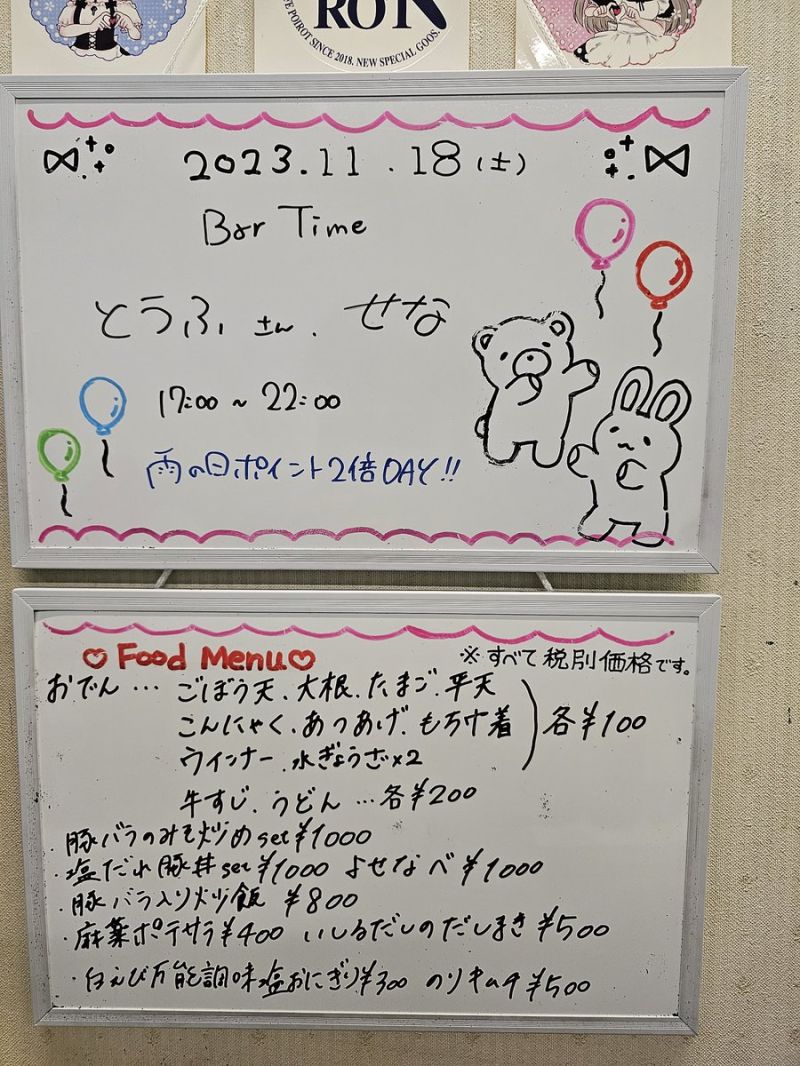 RON
E POIROT SINCE 2018. NEW SPECIAL GOOS.
2023.11.18(土)
Bar Time
とうふさん、せな
17:00~22:00
雨の日ポイント2倍DAY!!
Food Menu
※すべて税別価格です。
おでん…ごぼう天、大根、たまご、平天
こんにゃく、あつあげ、もち巾着 各¥100
ウインナー、水ぎょうざ×2
牛すじ、うどん…各¥200
・豚バラのみそ炒めset¥1000
・塩だれ豚丼set¥1000 よせなべ¥1000
・豚バラ入り炒飯 ¥800
・麻薬ポテサラ¥400 いしるだしのだしまき¥500
・白えび万能調味塩おにぎり¥300 のりキムチ¥500